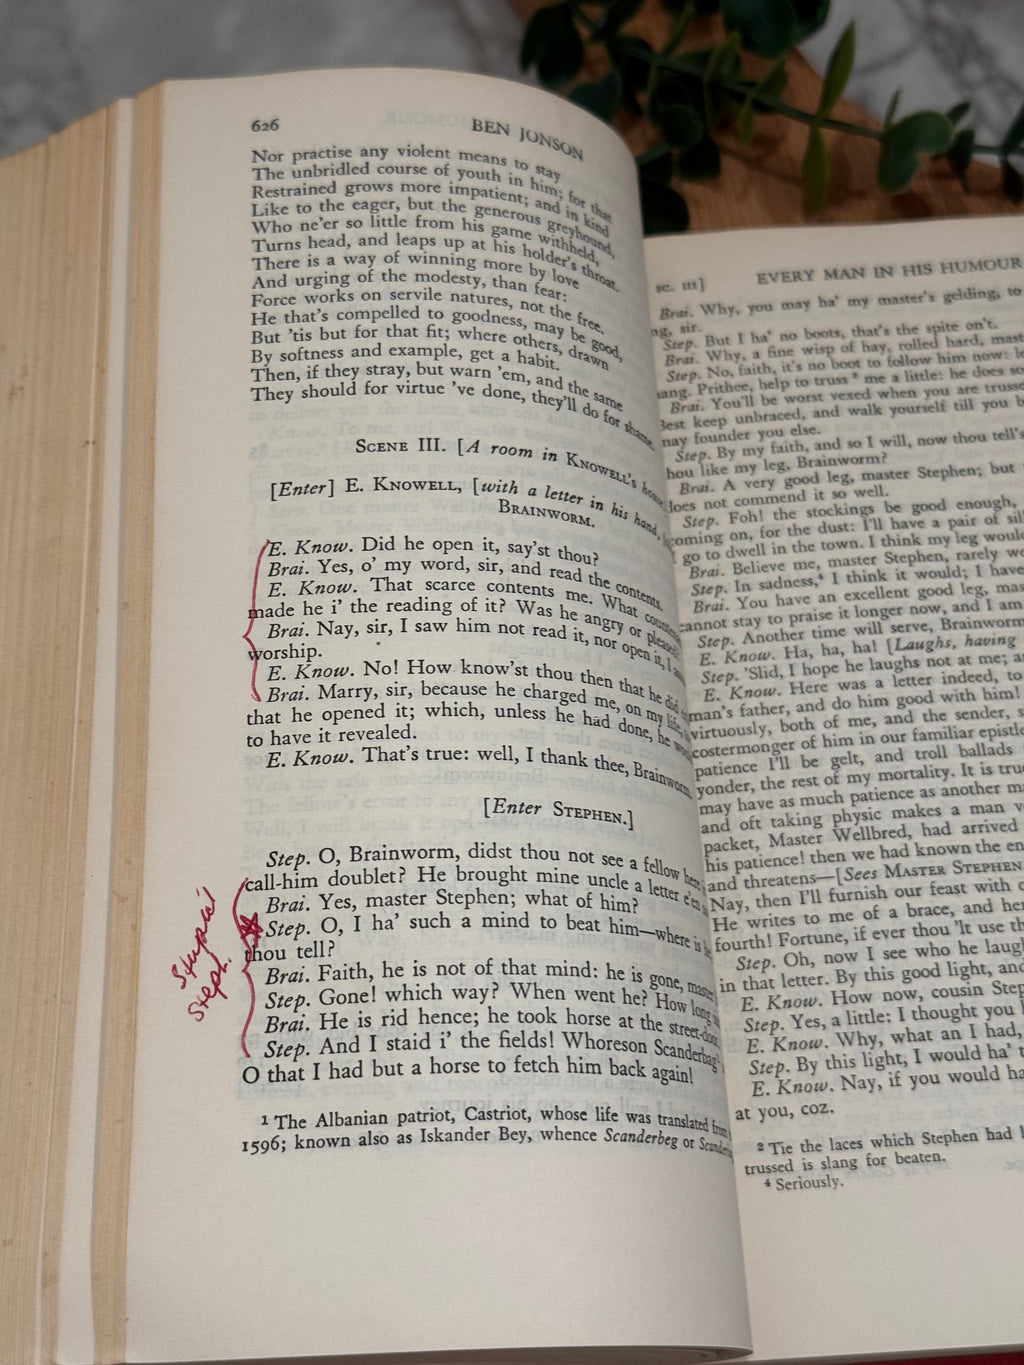 626
BEN JONSON
Nor practise any violent means to stay
The unbridled course of youth in him; for that
Restrained grows more impatient; and in kind
Like to the eager, but the generous greyhound,
Who ne'er so little from his game withheld,
Turns head, and leaps up at his holder's throat.
There is a way of winning more by love
And urging of the modesty, than fear:
Force works on servile natures, not the free.
He that's compelled to goodness, may be good,
But 'tis but for that fit; where others, drawn
By softness and example, get a habit.
Then, if they stray, but warn 'em, and the same
They should for virtue 've done, they'll do for shame.
SCENE III. [A room in KNOWELL's house
[Enter] E. KNOWELL, [with a letter in his hand,
BRAINWORM.
E. Know. Did he open it, say'st thou?
Brai. Yes, o' my word, sir, and read the contents.
E. Know. That scarce contents me. What
made he i' the reading of it? Was he angry or pleased
Brai. Nay, sir, I saw him not read it, nor open it, I
worship.
E. Know. No! How know'st thou then that he did
Brai. Marry, sir, because he charged me, on my life,
that he opened it; which, unless he had done, he
to have it revealed.
E. Know. That's true: well, I thank thee, Brainworm
[Enter STEPHEN.]
Step. O, Brainworm, didst thou not see a fellow here
call-him doublet? He brought mine uncle a letter e'en
Brai. Yes, master Stephen; what of him?
Step. O, I ha' such a mind to beat him—where is he
thou tell?
Brai. Faith, he is not of that mind: he is gone, master
Step. Gone! which way? When went he? How long
Brai. He is rid hence; he took horse at the street-door.
Step. And I staid i' the fields! Whoreson Scanderbag
O that I had but a horse to fetch him back again!
1 The Albanian patriot, Castriot, whose life was translated from
1596; known also as Iskander Bey, whence Scanderbeg or
Stupid
Steph.
sc. III]
EVERY MAN IN HIS HUMOUR
Brai. Why, you may ha' my master's gelding, to
ng, sir.
Step. But I ha' no boots, that's the spite on't.
Brai. Why, a fine wisp of hay, rolled hard, mast
Step. No, faith, it's no boot to follow him now: le
ang. Prithee, help to truss 2 me a little: he does so
Brai. You'll be worst vexed when you are trusse
Best keep unbraced, and walk yourself till you b
may founder you else.
Step. By my faith, and so I will, now thou tell's
hou like my leg, Brainworm?
Brai. A very good leg, master Stephen; but
does not commend it so well.
Step. Foh! the stockings be good enough,
coming on, for the dust: I'll have a pair of sil
I go to dwell in the town. I think my leg woul
Brai. Believe me, master Stephen, rarely we
Step. In sadness,4 I think it would; I have
Brai. You have an excellent good leg, mas
cannot stay to praise it longer now, and I am
Step. Another time will serve, Brainworm
E. Know. Ha, ha, ha! [Laughs, having
Step. 'Slid, I hope he laughs not at me; a
E. Know. Here was a letter indeed, to
man's father, and do him good with him!
virtuously, both of me, and the sender, s
costermonger of him in our familiar epistle
patience I'll be gelt, and troll ballads
yonder, the rest of my mortality. It is true
may have as much patience as another ma
and oft taking physic makes a man v
packet, Master Wellbred, had arrived
his patience! then we had known the en
and threatens—[Sees MASTER STEPHEN
Nay, then I'll furnish our feast with o
He writes to me of a brace, and her
fourth! Fortune, if ever thou 'lt use th
Step. Oh, now I see who he laugh
in that letter. By this good light, and
E. Know. How now, cousin Step
Step. Yes, a little: I thought you
E. Know. Why, what an I had,
Step. By this light, I would ha' t
E. Know. Nay, if you would ha
at you, coz.
2 Tie the laces which Stephen had
trussed is slang for beaten.
4 Seriously.